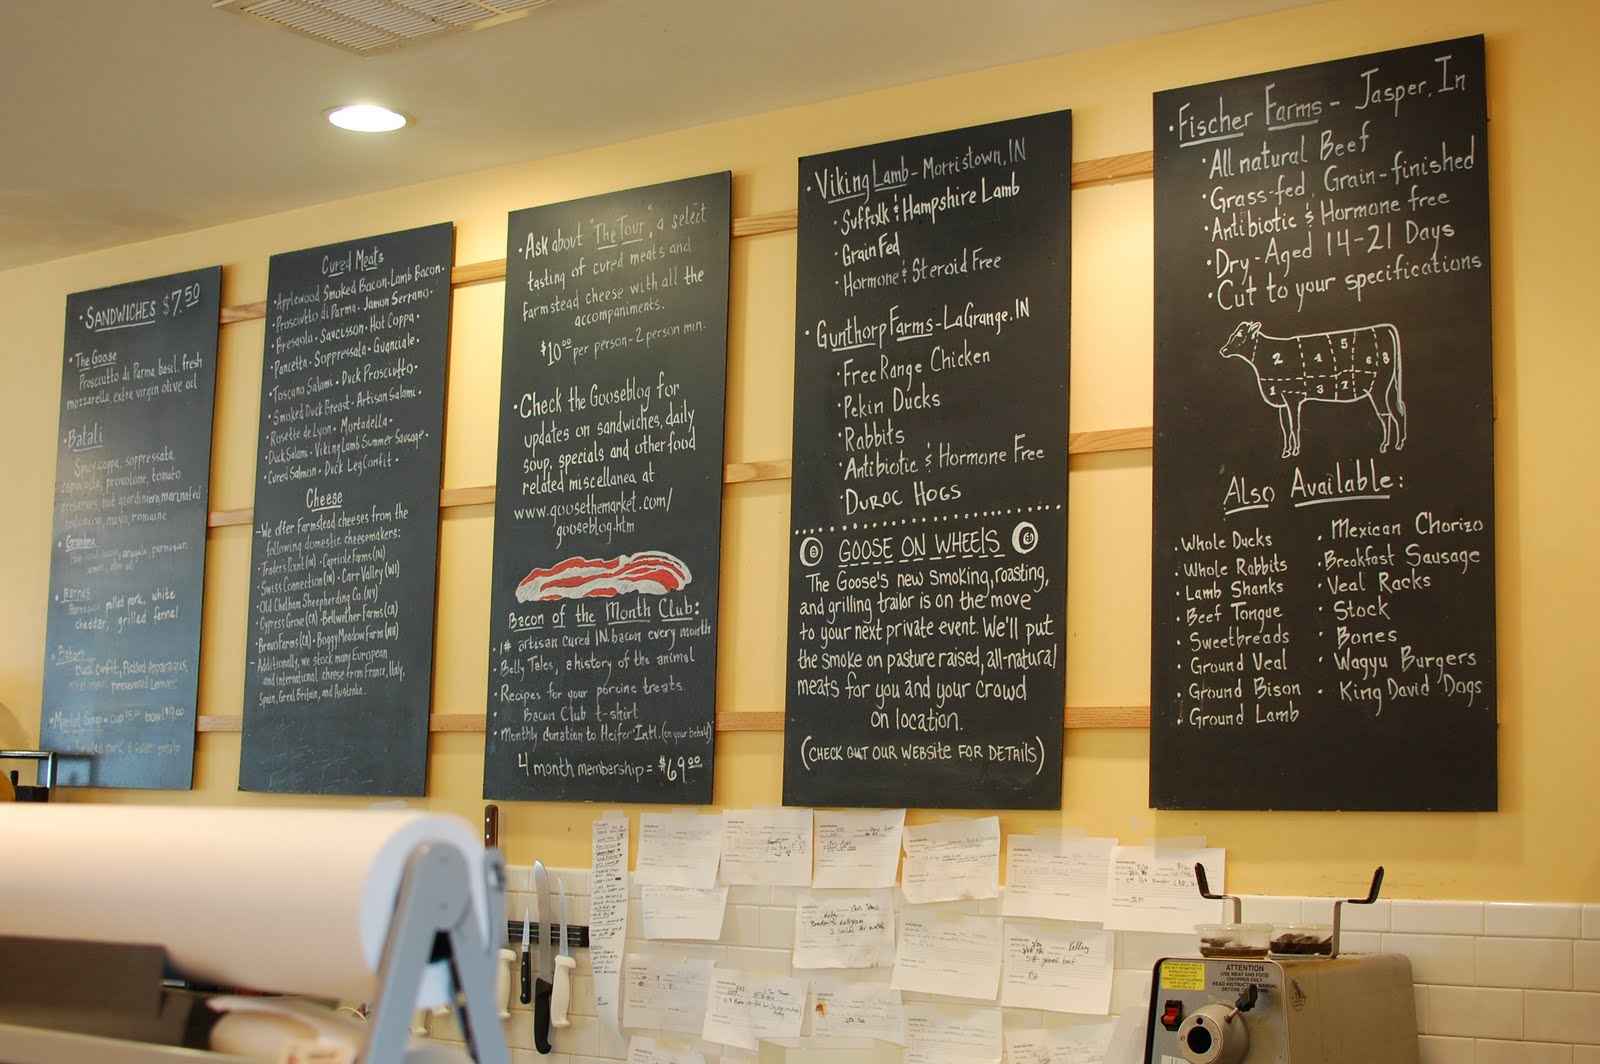 · SANDWICHES $7.50
· The Goose
Prosciutto di Parma, basil, fresh
mozzarella, extra virgin olive oil
· Batali
Spicy coppa, soppressata,
capocollo, provolone, tomato
preserves, hot giardiniera, marinated
red onion, mayo, romaine
· Grandma
arugula, parmesan
olive oil
· Barnes
pulled pork, white
cheddar, grilled fennel
Duck Confit, Pickled Asparagus,
preserved Lemons
· Market Soup · cup $5.00 bowl $9.00
Smoked pork & potato
Cured Meats
· Applewood Smoked Bacon · Lamb Bacon ·
· Prosciutto di Parma · Jamon Serrano ·
· Bresaola · Saucisson · Hot Coppa ·
· Pancetta · Soppressata · Guanciale ·
· Toscano Salami · Duck Prosciutto ·
· Smoked Duck Breast · Artisan Salami ·
· Rosette de Lyon · Mortadella ·
· Duck Salami · Viking Lamb Summer Sausage ·
· Cured Salmon · Duck Leg Confit ·
Cheese
- We offer Farmstead cheeses from the
following domestic cheesemakers:
· Traders Point (IN) · Capriole Farms (IN)
· Swiss Connection (IN) · Carr Valley (WI)
· Old Chatham Sheepherding Co. (NY)
· Cypress Grove (CA) · Bellwether Farms (CA)
· Bravo Farms (CA) · Boggy Meadow Farm (NH)
- Additionally, we stock many European
and international cheese from France, Italy,
Spain, Great Britain, and Australia.
· Ask about "The Tour", a select
tasting of cured meats and
farmstead cheese with all the
accompaniments.
$10.00 per person - 2 person min.
· Check the Gooseblog for
updates on sandwiches, daily
soup, specials and other food
related miscellanea at
www.goosethemarket.com/
gooseblog.htm
Bacon of the Month Club:
· 1# artisan cured IN bacon every month
· Belly Tales, a history of the animal
· Recipes for your porcine treats
· Bacon Club t-shirt
· Monthly donation to Heifer Int'l. (on your behalf)
4 month membership = $69.00
· Viking Lamb - Morristown, IN
· Suffolk & Hampshire Lamb
· Grain Fed
· Hormone & Steroid Free
· Gunthorp Farms - LaGrange, IN
· Free Range Chicken
· Pekin Ducks
· Rabbits
· Antibiotic & Hormone Free
· Duroc Hogs
GOOSE ON WHEELS
The Goose's new smoking, roasting,
and grilling trailor is on the move
to your next private event. We'll put
the smoke on pasture raised, all-natural
meats for you and your crowd
on location.
(CHECK OUT OUR WEBSITE FOR DETAILS)
· Fischer Farms - Jasper, In
· All natural Beef
· Grass-fed, Grain-finished
· Antibiotic & Hormone free
· Dry-Aged 14-21 Days
· Cut to your specifications
2 4 5 6 8
1 3 2
Also Available:
· Whole Ducks
· Whole Rabbits
· Lamb Shanks
· Beef Tongue
· Sweetbreads
· Ground Veal
· Ground Bison
· Ground Lamb
· Mexican Chorizo
· Breakfast Sausage
· Veal Racks
· Stock
· Bones
· Wagyu Burgers
· King David Dogs
Kelley
5# ground beef
ATTENTION
USE MEAT AND FOOD
CHOPPER ONLY
READ INSTRUCTION MANUAL